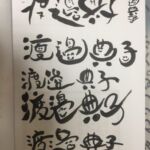 渡邉典子
渡邉典子
渡邉典子
渡邉典子
渡邉典子